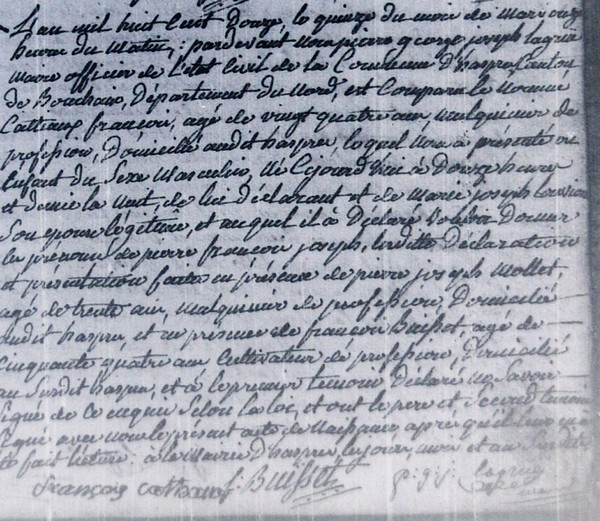 L'an mil huit cent Douze, le quinze du mois de Mars onze
heures du Matin, pardevant Nous pierre george joseph lagrue
maire officier de L'état Civil de la Commune D'haspres Canton
de Bouchain, Département du Nord, est Comparu le Nommé
Cattiaux francois, agé de vingt quatre ans, mulquinier de
profession, Domicilié audit haspres, lequel Nous à présenté un
Enfant du Sexe Masculin, Né Cejourd'hui à Douze heures
et demie la Nuit, de lui Déclarant et de Marie joseph
Son epouse légitime, et auquel il à Déclaré Vouloir Donner
les prénoms de pierre francois joseph, lesdittes Déclaration
et présentation faites en présence de pierre joseph Mollet,
agé de trente ans, mulquinier de profession, Domicilié
audit haspres, et en présence de francois Buisset, agé de
Cinquante quatre ans Cultivateur de profession, Domicilié
au Susdit haspres, et à le premier temoin Déclaré ne Savoir
Signé de Ce enquis Selon la loi, et ont le pere et Second temoin
Signé avec nous le présent acte de Naissance après qu'il leur en
été fait lecture. à la Mairie D'haspres les jour, mois et an Susdits
françois cattiaux f. Buisset p. g. j. lagrue